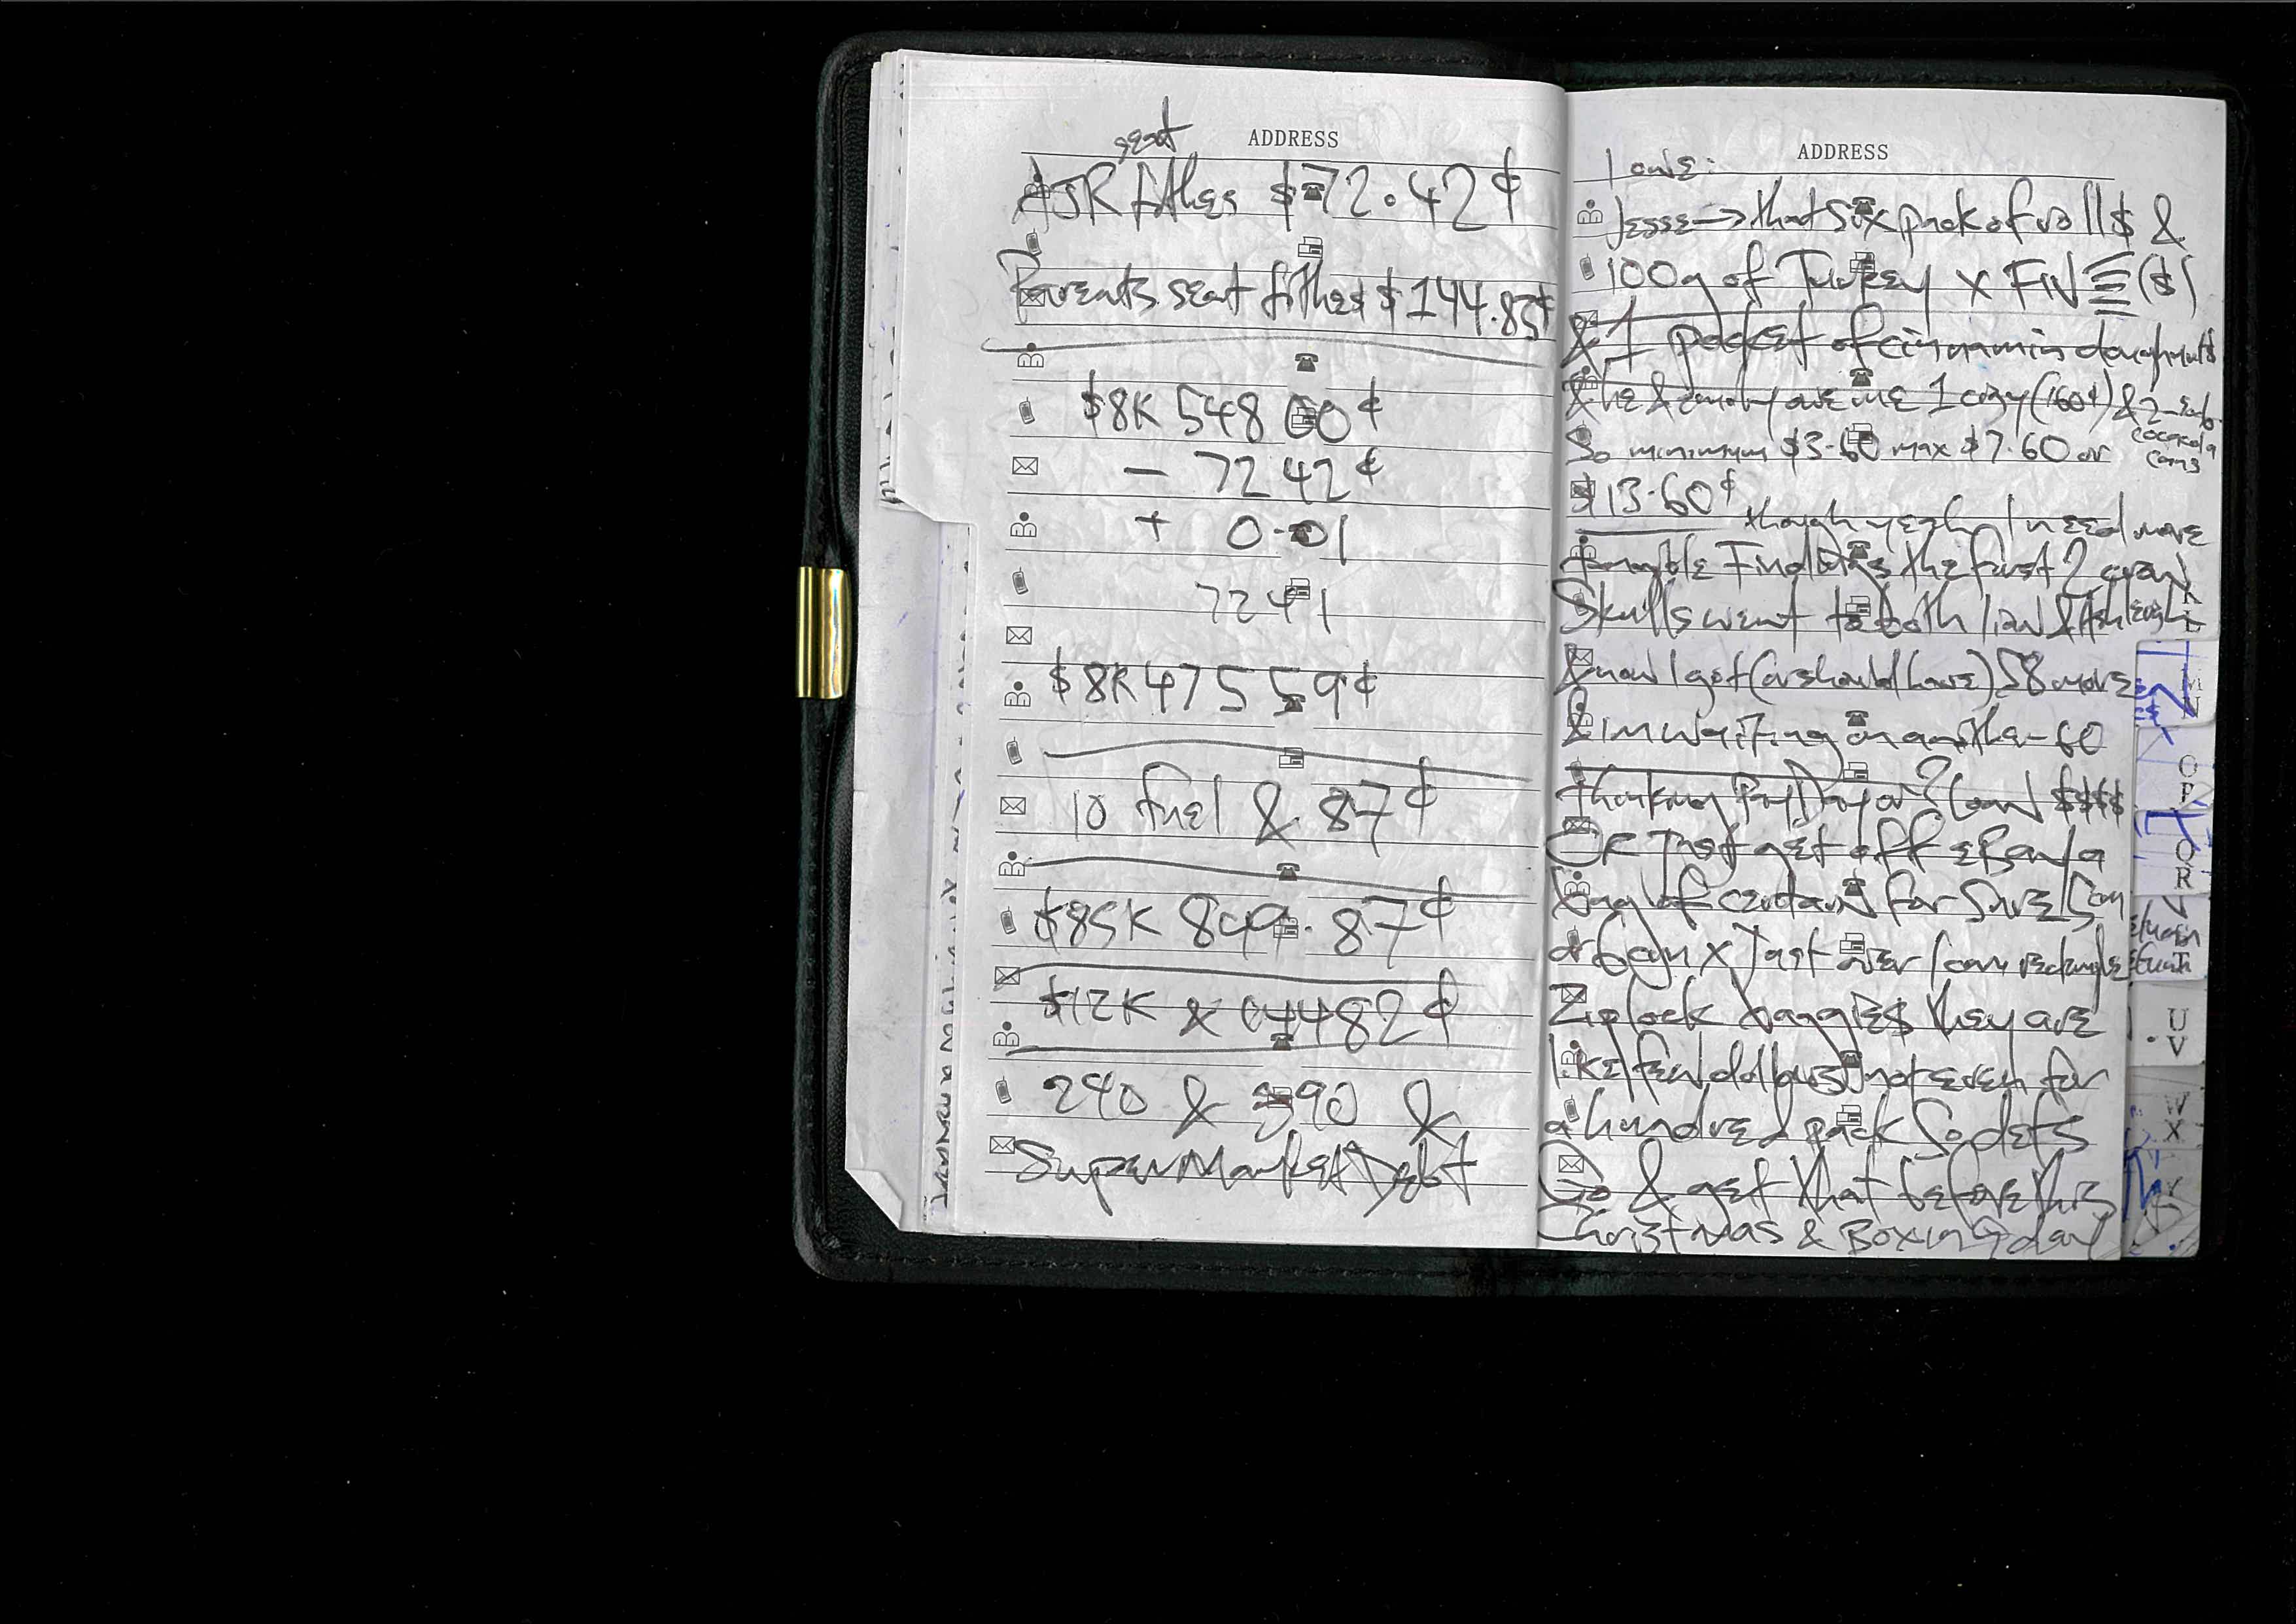 ADDRESS
seat
AJR fithes $72.42¢
Parents seat fithes $144.83¢
$8K 548 60¢
- 72 42¢
+ 0.01
7241
$8K 475 59¢
10 fuel & 87¢
$85K 849.87¢
$12K & 04482¢
240 & 390 &
SuperMarket Debt
ADDRESS
I owe:
Jesse → that six pack of roll$ &
100g of Turkey x FIVE ($)
& 1 packet of cinnamin doughnuts
& he & family owe me 1 cigy (160¢) & 2
cocacola
cans
So minimum $3.60 max $7.60 or
$13.60¢
though yeah I need more
the first 2 even
Skulls went to both Liam & Ashleigh
& now I got (or should have) 58 more
& im waiting on another 60
thinking PayDay or? Loan $$$$
OR Just get off eBay a
bag of certain for sure 5cm
or 6cm x Just over 1cm rectangle
Ziplock baggies they are
like few dollars not even for
a hundred pack So defs
Go & get that before this
Christmas & Boxing day
K
L
M
N
O
P
Q
R
T
U
V
W
X
Y